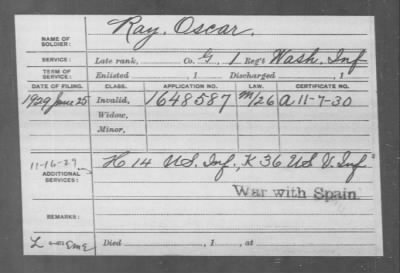 NAME OF SOLDIER: Ray, Oscar.
SERVICE: Late rank, Co. G, 1 Reg't Wash. Inf
TERM OF SERVICE: Enlisted , 1 Discharged , 1
DATE OF FILING. CLASS. APPLICATION NO. LAW. CERTIFICATE NO.
1929 June 25 Invalid, 1648587 M/26 A 11-7-30
Widow,
Minor,
11-16-27
ADDITIONAL SERVICES: H 14 U.S. Inf., K 36 U S V. Inf
War with Spain.
REMARKS:
Died , 1 , at